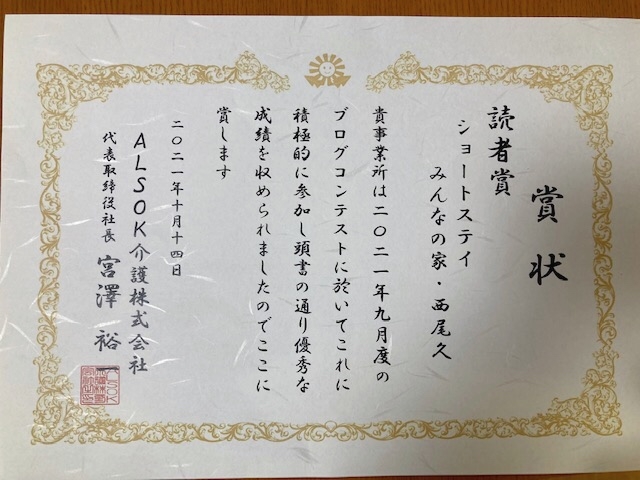 賞状
読者賞
ショートステイ
みんなの家・西尾久
貴事業所は二〇二一年九月度の
ブログコンテストに於いてこれに
積極的に参加し頭書の通り優秀な
成績を収められましたのでここに
賞します
二〇二一年十月十四日
ALSOK介護株式会社
代表取締役社長 宮澤裕一